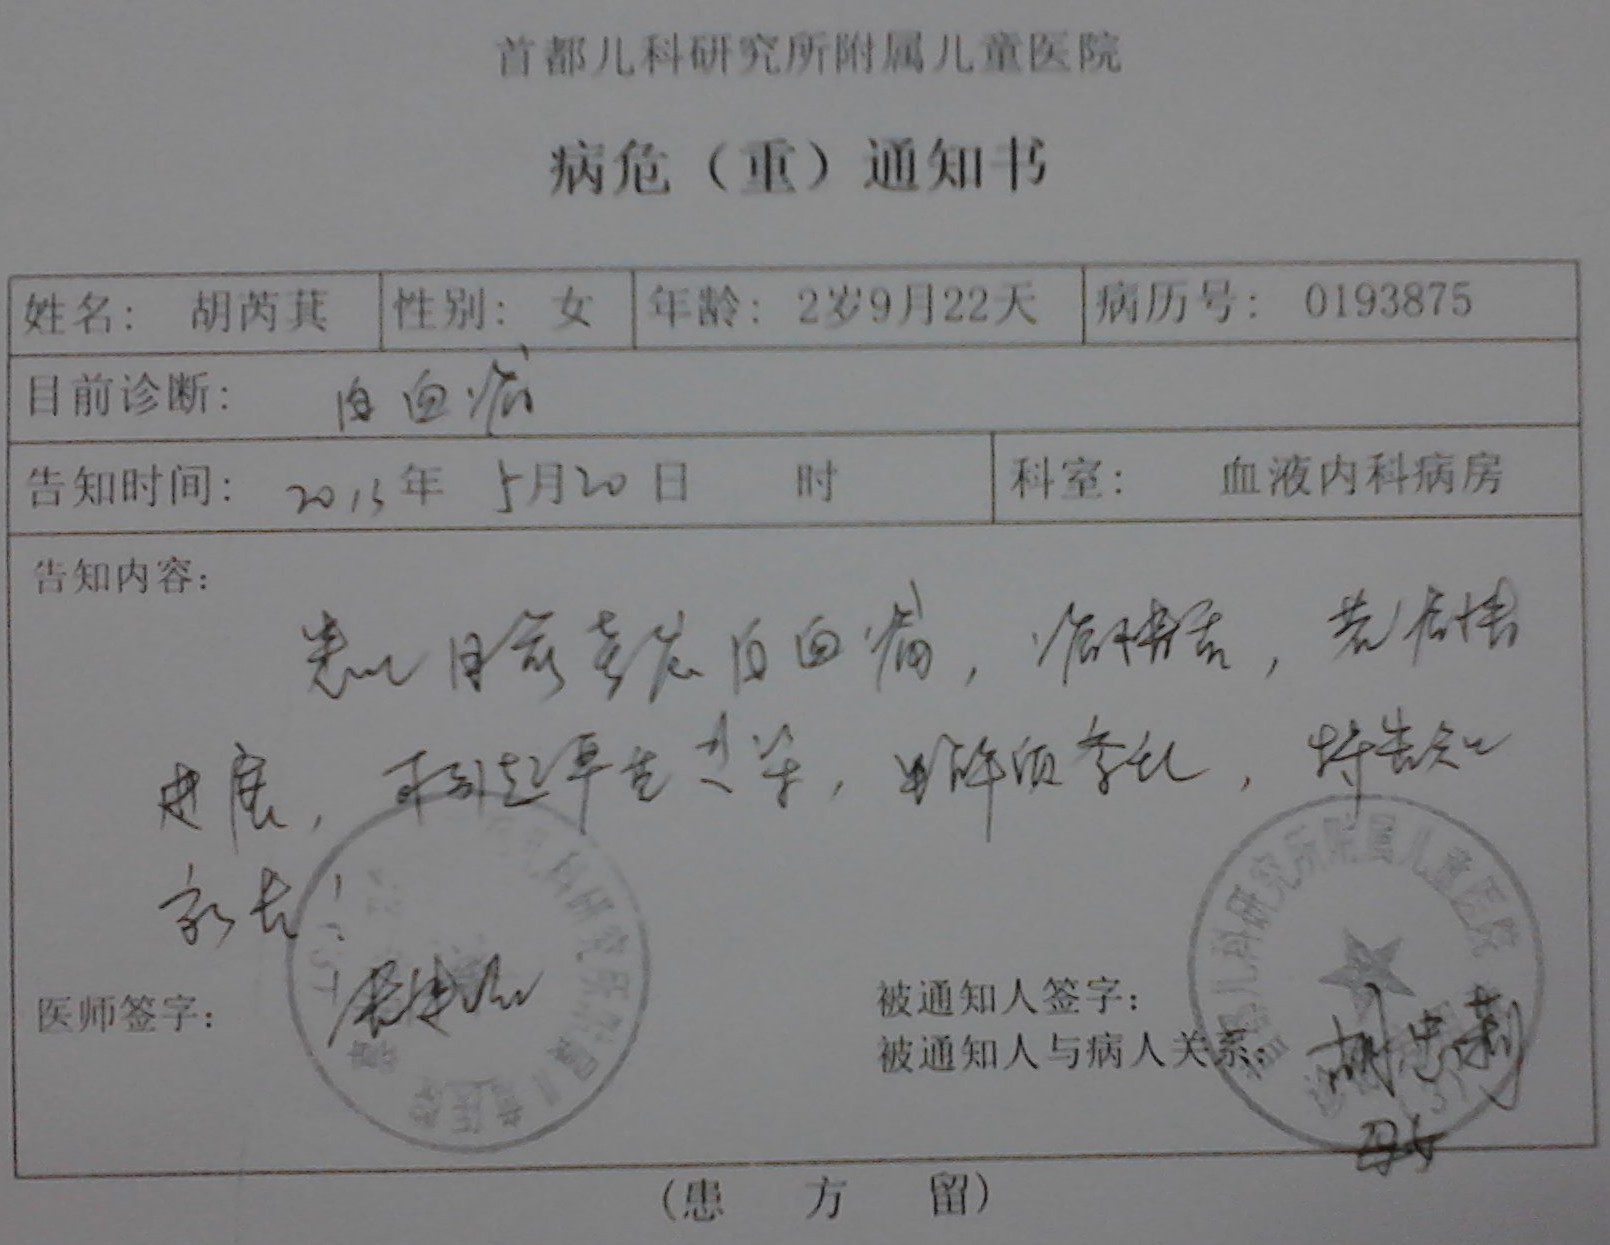 首都儿科研究所附属儿童医院
病危（重）通知书
姓名： 胡芮萁 性别： 女 年龄： 2岁9月22天 病历号： 0193875
目前诊断： 白血病
告知时间： 2013年 5月20日 时 科室： 血液内科病房
告知内容：
患儿目前考虑白血病，病情重，若病情
进展，可引起 ，，特告知
家长！
医师签字：
被通知人签字：
被通知人与病人关系： 胡忠莉
母女
（患 方 留）
首都儿科研究所附属儿童医院